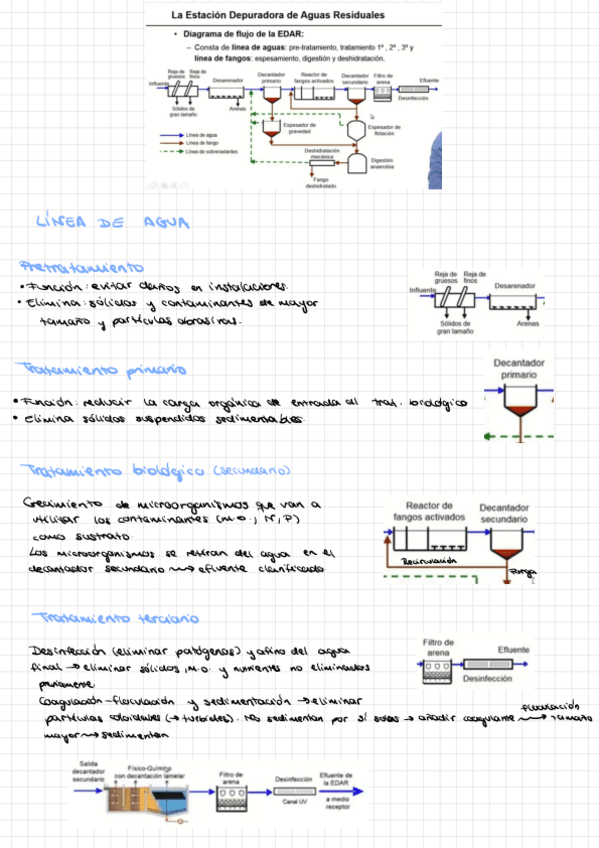 La Estación Depuradora de Aguas Residuales
• Diagrama de flujo de la EDAR:
– Consta de línea de aguas: pre-tratamiento, tratamiento 1º, 2º, 3º y
línea de fangos: espesamiento, digestión y deshidratación.
Reja de gruesos
Reja de finos
Influente
Desarenador
Decantador primario
Reactor de fangos activados
Decantador secundario
Filtro de arena
Efluente
Desinfección
Sólidos de gran tamaño
Arenas
Espesador de gravedad
Espesador de flotación
Línea de agua
Línea de fango
Línea de sobrenadantes
Deshidratación mecánica
Digestión anaerobia
Fango deshidratado
LÍNEA DE AGUA
Pretratamiento
• Función: evitar daños en instalaciones.
• Elimina: sólidos y contaminantes de mayor
tamaño y partículas abrasivas.
Reja de gruesos
Reja de finos
Influente
Desarenador
Sólidos de gran tamaño
Arenas
Tratamiento primario
• Función: reducir la carga orgánica de entrada al trat. biológico
• Elimina sólidos suspendidos sedimentables.
Decantador primario
Tratamiento biológico (secundario)
Crecimiento de microorganismos que van a
utilizar los contaminantes (m.o., N, P)
como sustrato.
Los microorganismos se retiran del agua en el
decantador secundario → efluente clarificado
Reactor de fangos activados
Decantador secundario
Recirculación
Purga
Tratamiento terciario
Desinfección (eliminar patógenos) y afino del agua
final → eliminar sólidos, M.O. y nutrientes no eliminados
previamente
Coagulación-floculación y sedimentación → eliminar
partículas coloidales (→ turbidez). No sedimentan por sí solas → añadir coagulante → floculación tamaño
mayor → sedimentan
Filtro de arena
Efluente
Desinfección
Salida decantador secundario
Físico-Químico con decantación lamelar
Filtro de arena
Desinfección
Canal UV
Efluente de la EDAR
a medio receptor